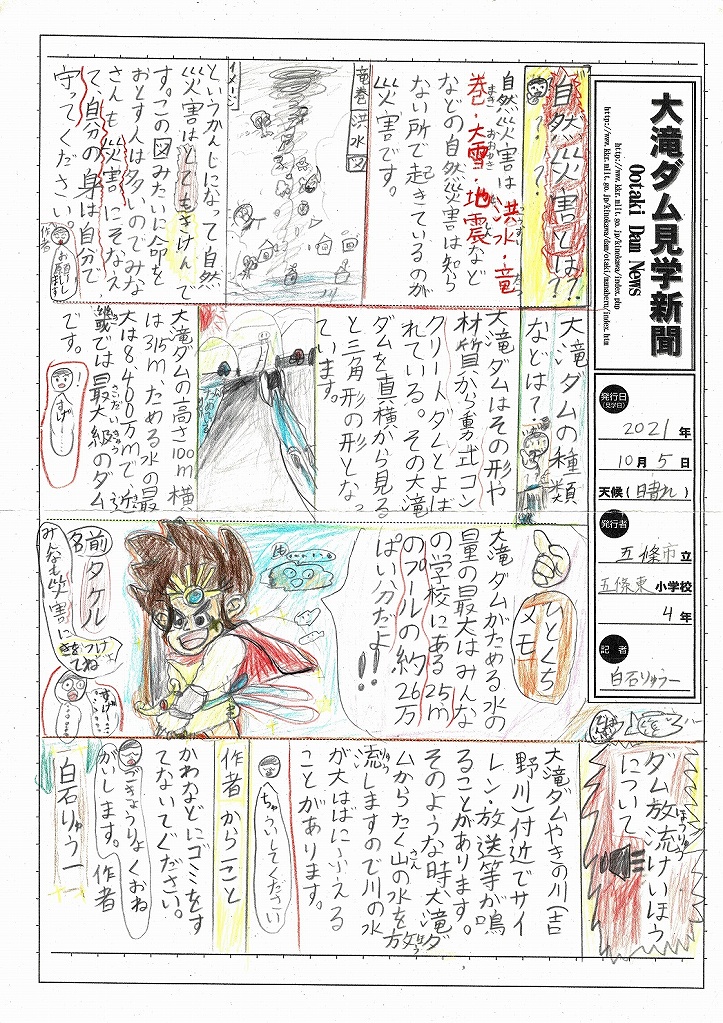 大滝ダム見学新聞
Ootaki Dam News
http://www.kkr.mlit.go.jp/kinokawa/index.php
発行日
(見学日)
2021年
10月5日
天候(晴れ)
発行者
五條市立
五條東小学校
4年
記者
白石りゅうー
自然災害とは??
???
自然災害は洪水・竜
巻・大雪・地震など
などの自然災害は知ら
ない所で起きているのが
災害です。
竜巻 洪水 図
イメージ
川
というかんじになって自然
災害はとてもきけんで
す。この図みたいに命を
おとす人は多いのでみな
さんも災害にそなえ
て、自分の身は自分で
守ってください。
作者
お願いします
大滝ダムの種類
などは?
大滝ダムはその形や
材質から重力式コン
クリートダムとよば
れている。その大滝
ダムを真横から見る
と三角形の形となっ
ています。
大滝ダムの高さ100m横
は315m、ためる水の最
大は8400万㎥で、近
畿では最大級のダム
です。
すげー
ひとくち
メモ
大滝ダムがためる水の
量の最大はみんな
の学校にある25m
のプールの約26万
ぱい分だよ!!
名前タケル
みんなも災害に
気をつけ
てね
すげー
ダム放流けいほう
について
大滝ダムやきの川(吉
野川)付近でサイ
レン・放送等が鳴
ることがあります。
そのような時大滝ダ
ムからたく山の水を放
流しますので川の水
が大はばにふえる
ことがあります。
ちゅういしてください
作者から一こと
かわなどにゴミをす
てないでください。
ごきょうりょくおね
がいします。作者
白石りゅうー